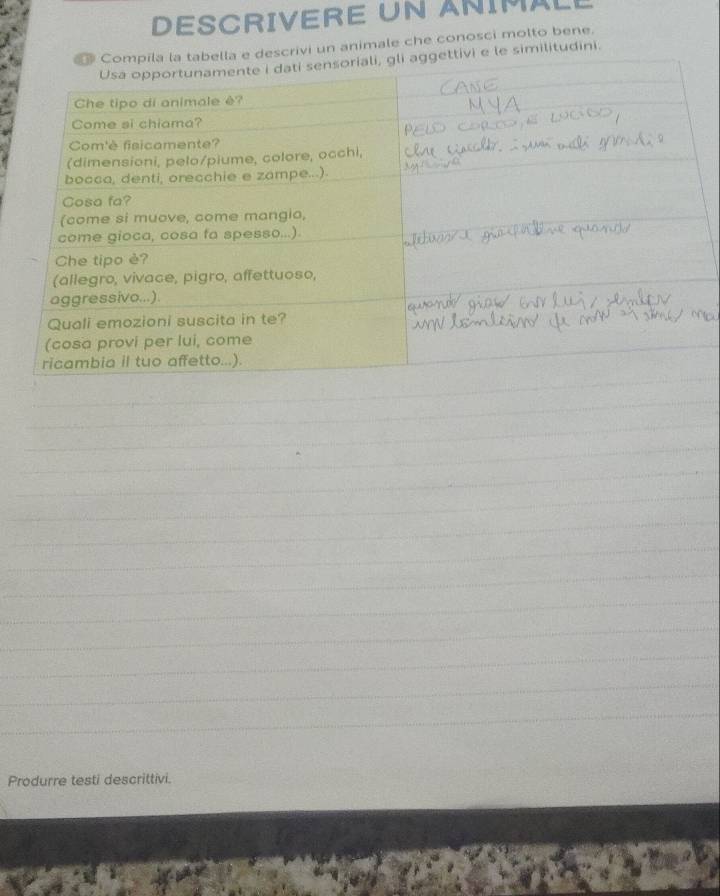 DESCRIVERE UN ANIMALE
1 Compila la tabella e descrivi un animale che conosci molto bene.
Usa opportunamente i dati sensoriali, gli aggettivi e le similitudini.
Che tipo di animale è?
CANE
Come si chiama?
MYA
Com'è fisicamente?
(dimensioni, pelo/piume, colore, occhi,
bocca, denti, orecchie e zampe...).
PELO CORTO, E LUCIDO,
che
Cosa fa?
(come si muove, come mangia,
come gioca, cosa fa spesso...).
Che tipo è?
(allegro, vivace, pigro, affettuoso,
aggressivo...).
quando
Quali emozioni suscita in te?
(cosa provi per lui, come
ricambia il tuo affetto...).
quando lui,
un
Produrre testi descrittivi.